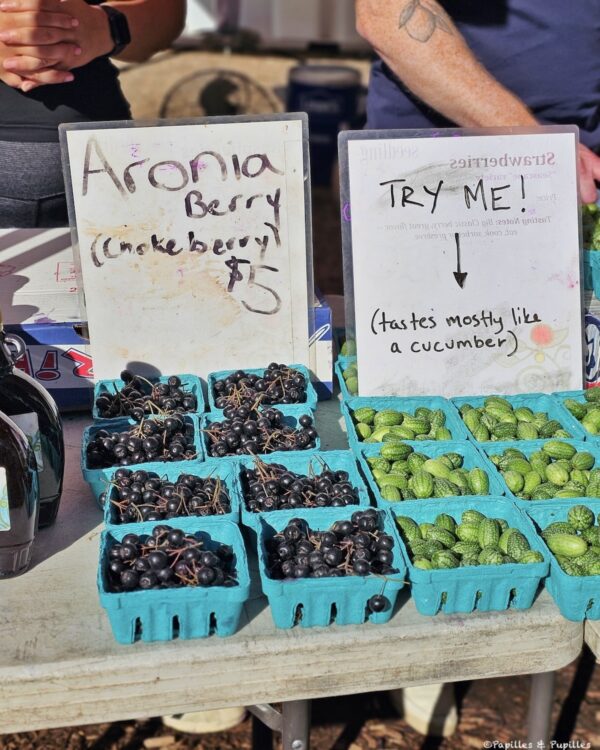 Aronia
Berry
(Chokeberry)
$5
seedling
Strawberries
TRY ME!
(tastes mostly like
a cucumber)
©Papilles & Pupilles